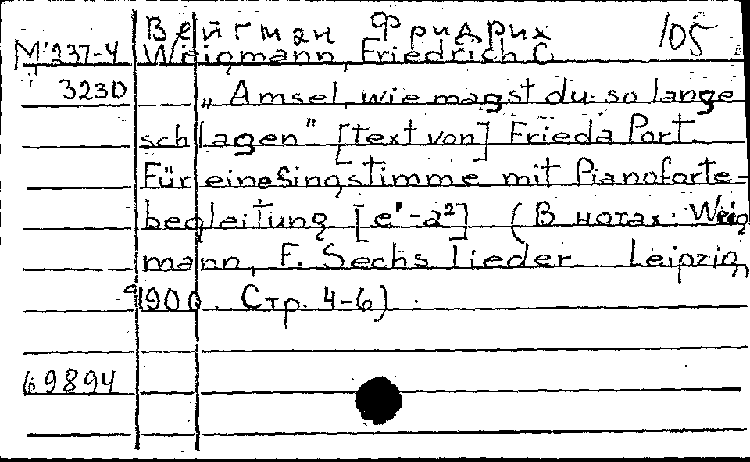 Вейгман Фридрих 105
М 237-4 Weigmann, Friedrich C.
3230 „Amsel, wie magst du so lange
schlagen" [text von] Frieda Port
Für eine Singstimme mit Pianoforte-
begleitung [e'-a²] (В нотах: Weig
mann, F. Sechs Lieder Leipzig,
1900. Стр. 4-6).
69894